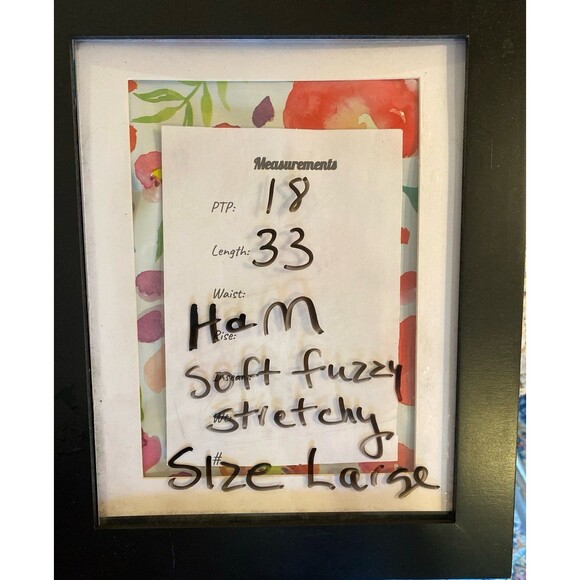 Measurements
PTP: 18
Length: 33
Waist:
H&M
Rise:
Soft fuzzy
Inseam:
stretchy
#
Size Large